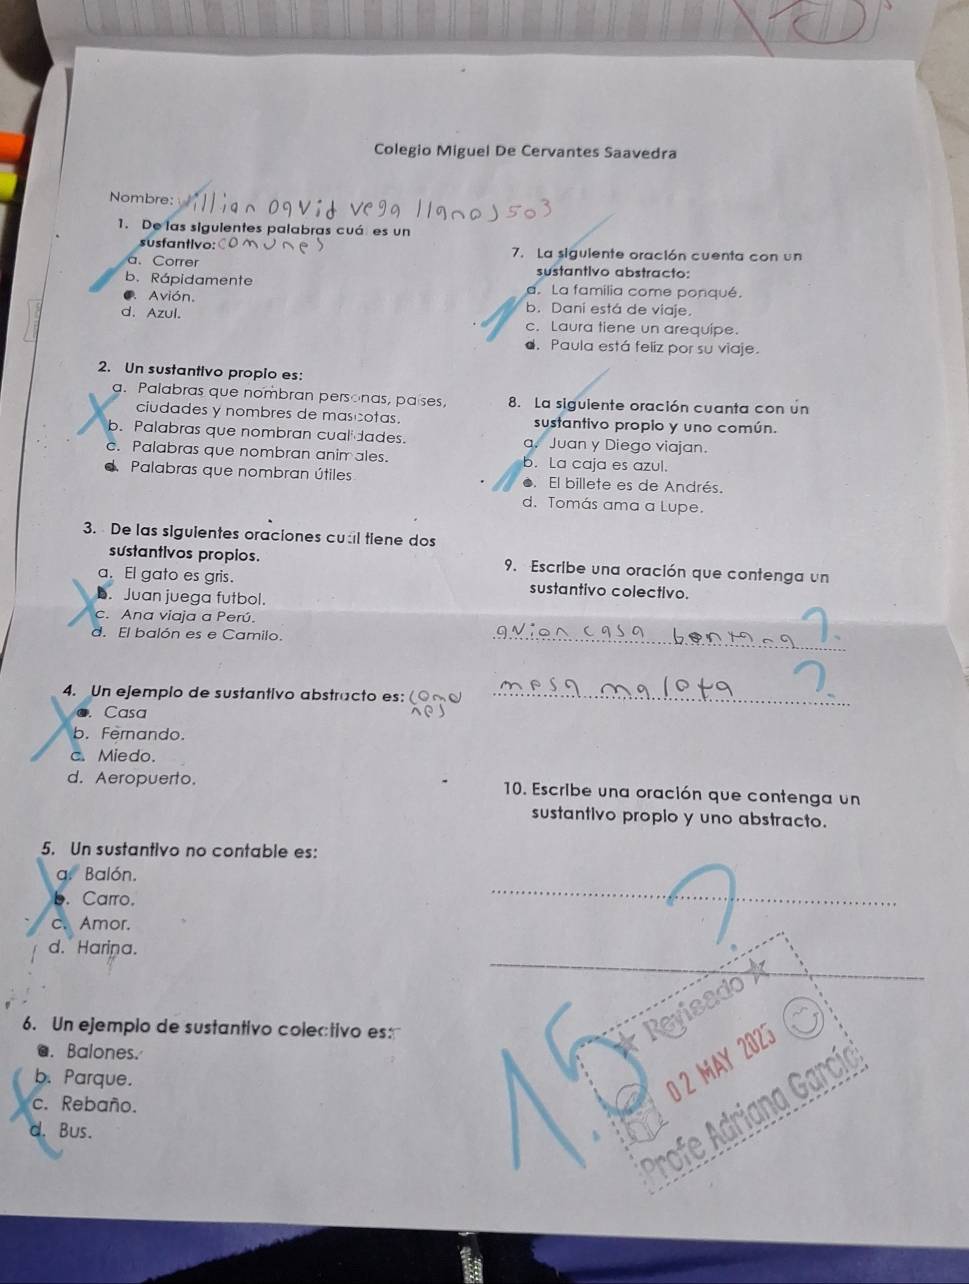 Colegio Miguel De Cervantes Saavedra
Nombre: Willian David vega llanos 503
1. De las siguientes palabras cuá es un
sustantivo: comunes
a. Correr
b. Rápidamente
c. Avión.
d. Azul.
2. Un sustantivo propio es:
a. Palabras que nombran personas, países,
ciudades y nombres de mascotas.
b. Palabras que nombran cualidades.
c. Palabras que nombran animales.
d. Palabras que nombran útiles
3. De las siguientes oraciones cuál tiene dos
sustantivos propios.
a. El gato es gris.
b. Juan juega futbol.
c. Ana viaja a Perú.
d. El balón es e Camilo.
4. Un ejemplo de sustantivo abstracto es: comu
nes
a. Casa
b. Fernando.
c. Miedo.
d. Aeropuerto.
5. Un sustantivo no contable es:
a. Balón.
b. Carro.
c. Amor.
d. Harina.
6. Un ejemplo de sustantivo colectivo es:
a. Balones.
b. Parque.
c. Rebaño.
d. Bus.
7. La siguiente oración cuenta con un
sustantivo abstracto:
a. La familia come ponqué.
b. Dani está de viaje.
c. Laura tiene un arequipe.
d. Paula está feliz por su viaje.
8. La siguiente oración cuanta con un
sustantivo propio y uno común.
a. Juan y Diego viajan.
b. La caja es azul.
c. El billete es de Andrés.
d. Tomás ama a Lupe.
9. Escribe una oración que contenga un
sustantivo colectivo.
avion casa bentana ?.
mesa malota ?.
10. Escribe una oración que contenga un
sustantivo propio y uno abstracto.
?
1.5
Revisado
02 MAY 2025
Profe Adriana García